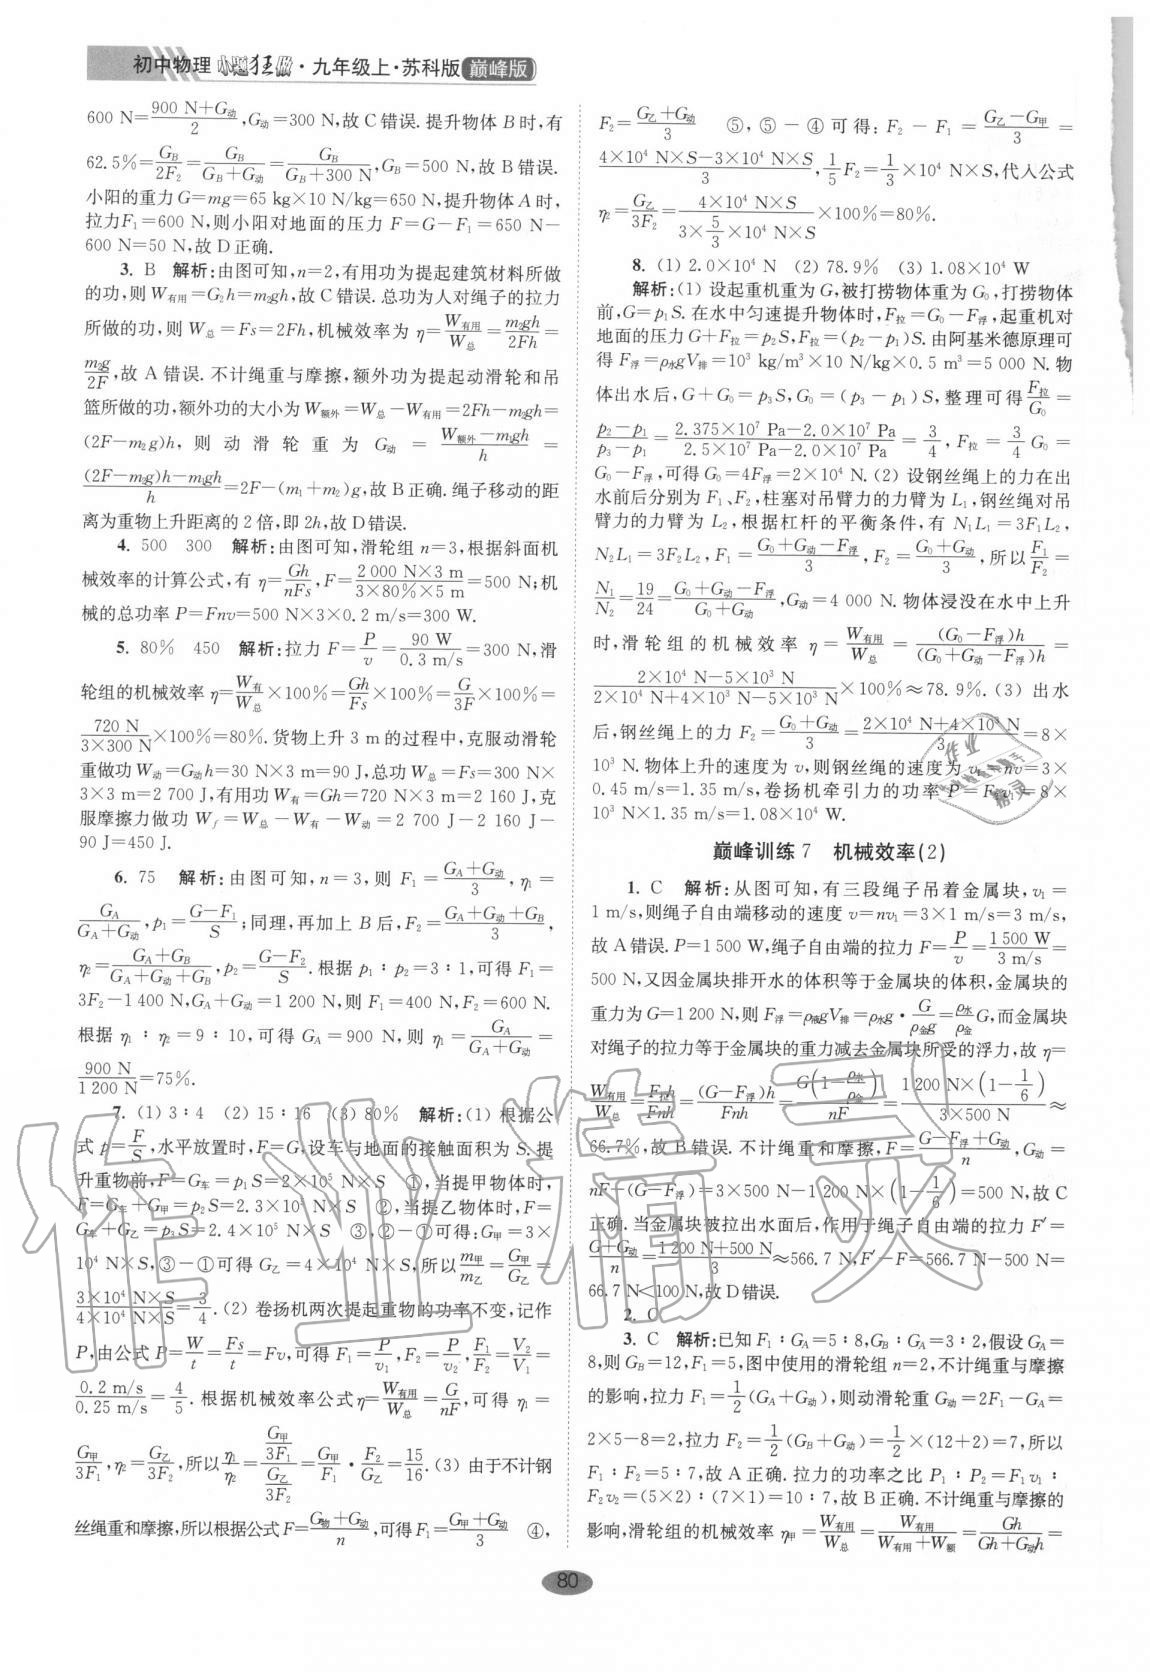 初中物理 小题狂做·九年级上·苏科版 巅峰版
600 N=(900 N+G动)/2,G动=300 N,故C错误. 提升物体B时,有
62.5%=GB/2F2=GB/(GB+G动)=GB/(GB+300 N),GB=500 N,故B错误.
小阳的重力G=mg=65 kg×10 N/kg=650 N,提升物体A时,
拉力F1=600 N,则小阳对地面的压力F=G-F1=650 N-
600 N=50 N,故D正确.
3. B 解析:由图可知,n=2,有用功为提起建筑材料所做
的功,则W有用=G2h=m2gh,故C错误. 总功为人对绳子的拉力
所做的功,则W总=Fs=2Fh,机械效率为η=W有用/W总=m2gh/2Fh=
m2g/2F,故A错误. 不计绳重与摩擦,额外功为提起动滑轮和吊
篮所做的功,额外功的大小为W额外=W总-W有用=2Fh-m2gh=
(2F-m2g)h,则动滑轮重为G动=(W额外-m1gh)/h=
((2F-m2g)h-m1gh)/h=2F-(m1+m2)g,故B正确. 绳子移动的距
离为重物上升距离的2倍,即2h,故D错误.
4. 500 300 解析:由图可知,滑轮组n=3,根据斜面机
械效率的计算公式,有η=Gh/nFs,F=(2 000 N×3 m)/(3×80%×5 m)=500 N;机
械的总功率P=Fnv=500 N×3×0.2 m/s=300 W.
5. 80% 450 解析:拉力F=P/v=90 W/0.3 m/s=300 N,滑
轮组的机械效率η=W有/W总×100%=Gh/Fs×100%=G/3F×100%=
720 N/(3×300 N)×100%=80%. 货物上升3 m的过程中,克服动滑轮
重做功W动=G动h=30 N×3 m=90 J,总功W总=Fs=300 N×
3×3 m=2 700 J,有用功W有=Gh=720 N×3 m=2 160 J,克
服摩擦力做功Wf=W总-W有-W动=2 700 J-2 160 J-
90 J=450 J.
6. 75 解析:由图可知,n=3,则F1=(GA+G动)/3,η1=
GA/(GA+G动),p1=(G-F1)/S;同理,再加上B后,F2=(GA+G动+GB)/3,
η2=(GA+GB)/(GA+G动+GB),p2=(G-F2)/S. 根据p1∶p2=3∶1,可得F1=
3F2-1 400 N,GA+G动=1 200 N,则F1=400 N,F2=600 N.
根据η1∶η2=9∶10,可得GA=900 N,则η1=GA/(GA+G动)=
900 N/1 200 N=75%.
7. (1) 3∶4 (2) 15∶16 (3) 80% 解析:(1) 根据公
式p=F/S,水平放置时,F=G,设车与地面的接触面积为S. 提
升重物前,F=G车=p1S=2×10⁵ N×S ①,当提甲物体时,
F=G车+G甲=p2S=2.3×10⁵ N×S ②,当提乙物体时,F=
G车+G乙=p3S=2.4×10⁵ N×S ③,②-①可得:G甲=3×
10⁴ N×S,③-①可得G乙=4×10⁴ N×S,所以m甲/m乙=G甲/G乙=
(3×10⁴ N×S)/(4×10⁴ N×S)=3/4. (2) 卷扬机两次提起重物的功率不变,记作
P,由公式P=W/t=Fs/t=Fv,可得F1=P/v1,F2=P/v2,F1/F2=V2/V1=
0.2 m/s/0.25 m/s=4/5. 根据机械效率公式η=W有用/W总=G/nF,可得η1=
G甲/3F1,η2=G乙/3F2,所以η1/η2=(G甲/3F1)/(G乙/3F2)=G甲/F1·F2/G乙=15/16. (3) 由于不计钢
丝绳重和摩擦,所以根据公式F=(G物+G动)/n,可得F1=(G甲+G动)/3 ④,
F2=(G乙+G动)/3 ⑤,⑤-④可得:F2-F1=(G乙-G甲)/3=
(4×10⁴ N×S-3×10⁴ N×S)/3,1/5F2=1/3×10⁴ N×S,代入公式
η2=G乙/3F2=(4×10⁴ N×S)/(3×5/3×10⁴ N×S)×100%=80%.
8. (1) 2.0×10⁴ N (2) 78.9% (3) 1.08×10⁴ W
解析:(1) 设起重机重为G,被打捞物体重为G0,打捞物体
前,G=p1S. 在水中匀速提升物体时,F拉=G0-F浮,起重机对
地面的压力G+F拉=p2S,F拉=(p2-p1)S. 由阿基米德原理可
得F浮=ρ水gV排=10³ kg/m³×10 N/kg×0.5 m³=5 000 N. 物
体出水后,G+G0=p3S,G0=(p3-p1)S,整理可得F拉/G0=
(p2-p1)/(p3-p1)=(2.375×10⁷ Pa-2.0×10⁷ Pa)/(2.5×10⁷ Pa-2.0×10⁷ Pa)=3/4,F拉=3/4G0=
G0-F浮,可得G0=4F浮=2×10⁴ N. (2) 设钢丝绳上的力在出
水前后分别为F1、F2,柱塞对吊臂力的力臂为L1,钢丝绳对吊
臂力的力臂为L2,根据杠杆的平衡条件,有N1L1=3F1L2,
N2L1=3F2L2,F1=(G0+G动-F浮)/3,F2=(G0+G动)/3,所以F1/F2=
N1/N2=19/24=(G0+G动-F浮)/(G0+G动),G动=4 000 N. 物体浸没在水中上升
时,滑轮组的机械效率η=W有用/W总=(G0-F浮)h/(G0+G动-F浮)h=
(2×10⁴ N-5×10³ N)/(2×10⁴ N+4×10³ N-5×10³ N)×100%≈78.9%. (3) 出水
后,钢丝绳上的力F2=(G0+G动)/3=(2×10⁴ N+4×10³ N)/3=8×
10³ N. 物体上升的速度为v,则钢丝绳的速度为v1=3v=3×
0.45 m/s=1.35 m/s,卷扬机牵引力的功率P=F2v1=8×
10³ N×1.35 m/s=1.08×10⁴ W.
巅峰训练7 机械效率(2)
1. C 解析:从图可知,有三段绳子吊着金属块,v1=
1 m/s,则绳子自由端移动的速度v=nv1=3×1 m/s=3 m/s,
故A错误. P=1 500 W,绳子自由端的拉力F=P/v=1 500 W/3 m/s=
500 N,又因金属块排开水的体积等于金属块的体积,金属块的
重力为G=1 200 N,则F浮=ρ液gV排=ρ水g·G/ρ金g=ρ水/ρ金G,而金属块
对绳子的拉力等于金属块的重力减去金属块所受的浮力,故η=
W有用/W总=F拉h/Fnh=(G-F浮)h/Fnh=G(1-ρ水/ρ金)/nF=1 200 N×(1-1/6)/(3×500 N)≈
66.7%,故B错误. 不计绳重和摩擦,F=(G-F浮+G动)/n,G动=
nF-(G-F浮)=3×500 N-1 200 N×(1-1/6)=500 N,故C
正确. 当金属块被拉出水面后,作用于绳子自由端的拉力F′=
(G+G动)/n=(1 200 N+500 N)/3≈566.7 N,F′-F=566.7 N-500 N=
66.7 N<100 N,故D错误.
2. C
3. C 解析:已知F1∶GA=5∶8,GB∶GA=3∶2,假设GA=
8,则GB=12,F1=5,图中使用的滑轮组n=2,不计绳重与摩擦
的影响,拉力F1=1/2(GA+G动),则动滑轮重G动=2F1-GA=
2×5-8=2,拉力F2=1/2(GB+G动)=1/2×(12+2)=7,所以
F1∶F2=5∶7,故A正确. 拉力的功率之比P1∶P2=F1v1∶
F2v2=(5×2)∶(7×1)=10∶7,故B正确. 不计绳重与摩擦的
影响,滑轮组的机械效率η甲=W有用/W总=W有用/(W有用+W额)=Gh/(Gh+G动h)=
80
作业精灵